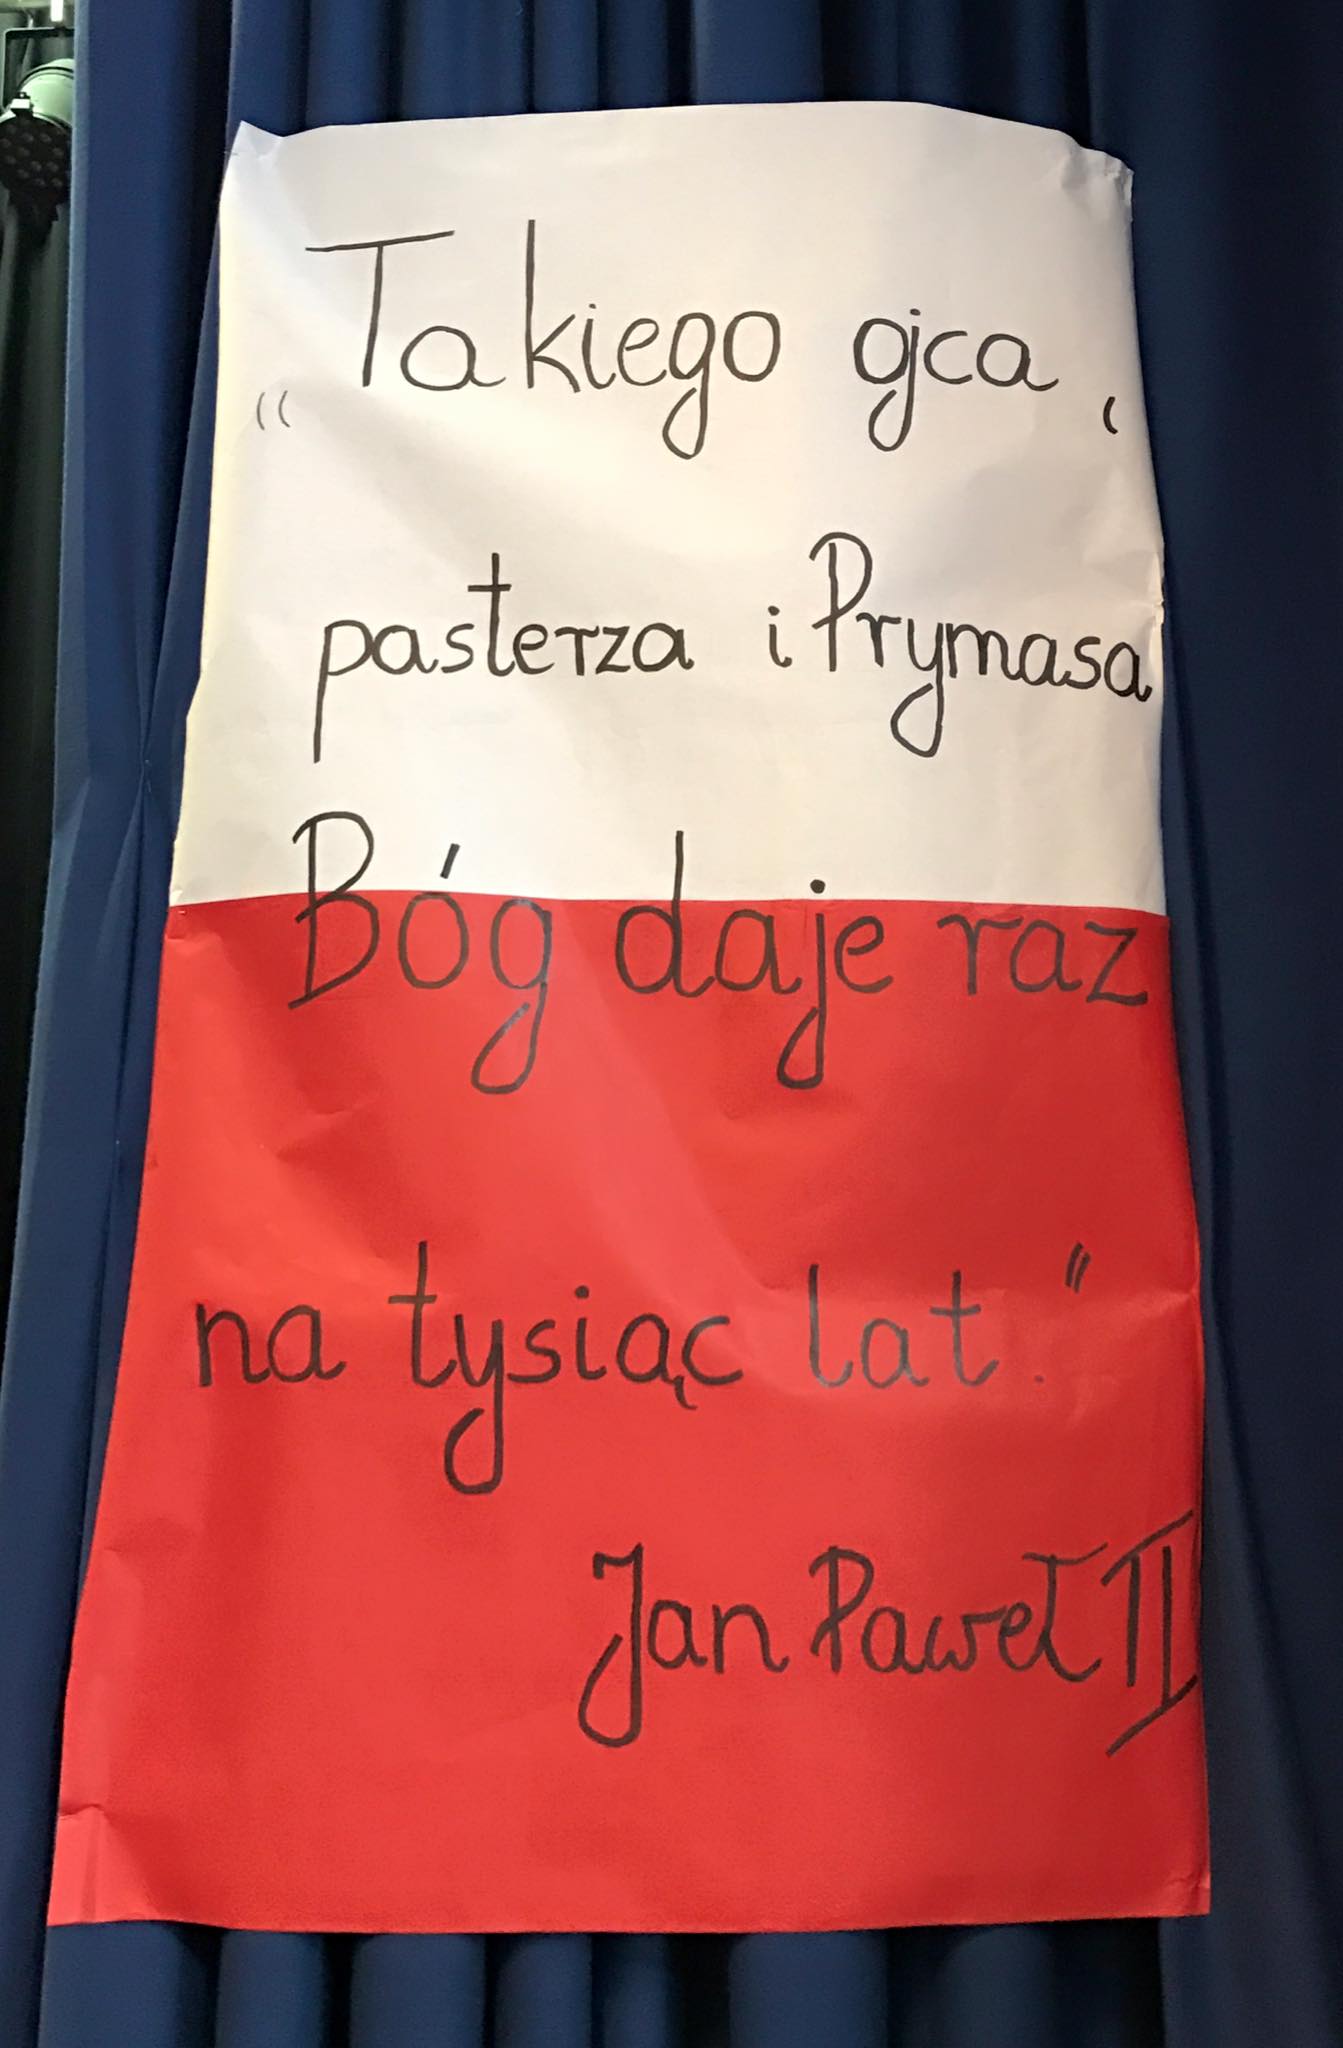 „Takiego ojca,
pasterza i Prymasa
Bóg daje raz
na tysiąc lat."
Jan Paweł II